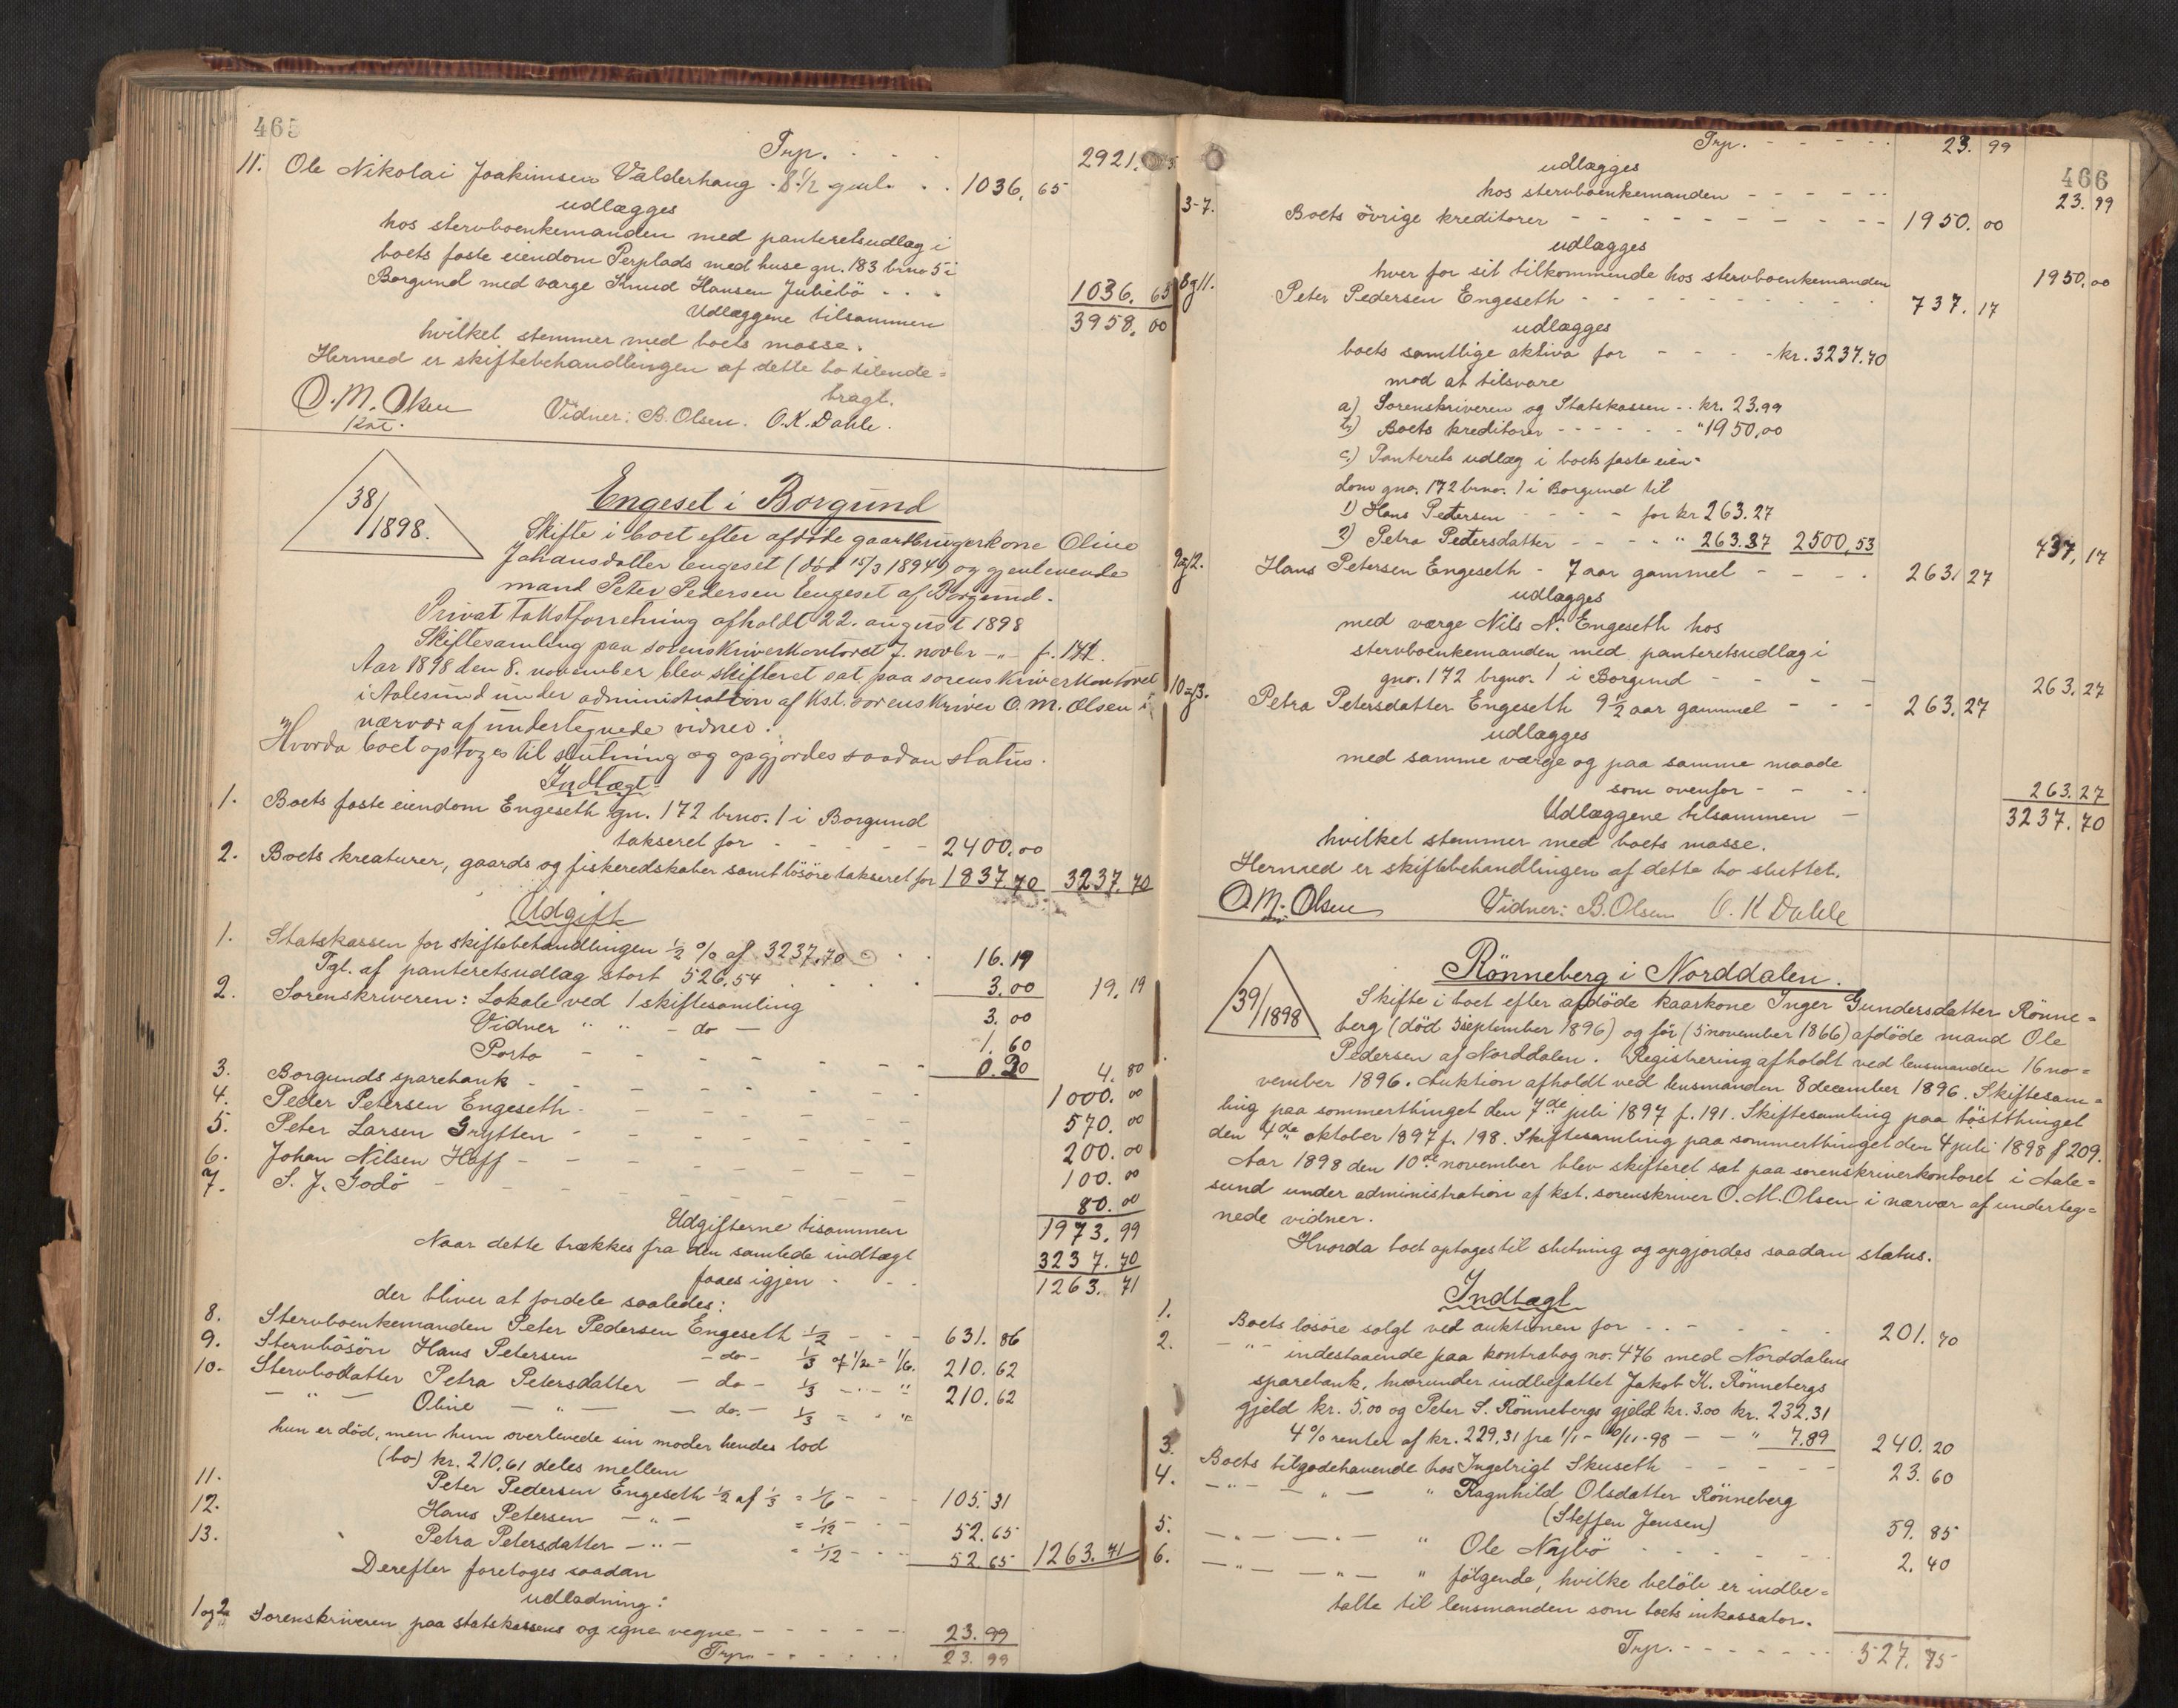 465
Trp. . . . 2921.
11. Ole Nikolai Joakimsen Valderhaug 8 1/2 gml. . . 1036,65
udlægges
hos stervboenkemanden med panteretsudlæg i
boets faste eiendom Perplads med huse gn. 183 brno 5 i
Borgund med værge Knud Hansen Juliebö . . . 1036.65
Udlæggene tilsammen 3958,00
hvilket stemmer med boets masse.
Hermed er skiftebehandlingen af dette bo tilende=
bragt.
O. M. Olsen
kst.
Vidner: B. Olsen. O. K. Dahle.
38/1898.
Engeset i Borgund
Skifte i boet efter afdöde gaardbrugerkone Oline
Johansdatter Engeset (död 15/3 1894) og gjenlevende
mand Peter Pedersen Engeset af Borgund.
Privat takstforretning afholdt 22. august 1898
Skiftesamling paa sorenskriverkontoret 7. novbr -"- f.
Aar 1898 den 8. november blev skifteret sat paa sorenskriverkontoret
i Aalesund under administration af kst. sorenskriver O. M. Olsen i
nærvær af undertegnede vidner.
Hvorda boet optoges til slutning og opgjordes saadan status.
Indtægt
1. Boets faste eiendom Engeseth gn. 172 brno. 1 i Borgund
takseret for - - - - - 2400,00
2. Boets kreaturer, gaards og fiskeredskaber samt lösöre takseret for 1837.70 3237.70
Udgift
1. Statskassen for skiftebehandlingen 1/2 % af 3237.70 . . 16.19
Tgl. af panteretsudlæg stort 526.54 . . . . 3.00 19.19
2. Sorenskriveren: Lokale ved 1 skiftesamling 3.00
Vidner " " - do - 1.60
Porto - - - - - - - 0.20 4.80
3. Borgunds sparebank - - - - - - - 1000.00
4. Peder Petersen Engeseth - - - - - - 570.00
5. Peter Larsen Grytten - - - - - - 200.00
6. Johan Nilsen Hoff - - - - - - - 100.00
7. S. J. Godö - - - - - - - - 80.00
Udgifterne tisammen 1973.99
Naar dette trækkes fra den samlede indtægt 3237.70
faaes igjen . - - 1263.71
der bliver at fordele saaledes:
8. Stervboenkemanden Peter Pedersen Engeseth 1/2 - - - 631.86
9. Stervbosön Hans Petersen - do - 1/3 af 1/2 = 1/6. 210.62
10. Stervbodatter Petra Petersdatter - do - 1/3 - .. - " 210.62
- " - Oline - " - - do. - 1/3 = . "
hun er död, men hun overlevede sin moder hendes lod
(bo) kr. 210.61 deles mellem
11. Peter Pedersen Engeseth 1/2 af 1/3 = 1/6 - - - 105.31
12. Hans Petersen - " - = 1/12 - . . 52.65
13. Petra Petersdatter - " - = 1/12 - . . 52.65 1263.71
Derefter foretoges saadan
udlodning:
1 og 2 Sorenskriveren paa statskassens og egne vegne. - - - - - 23.99
Trp. - - - - - 23.99
466
Trp. - - - - - 23.99
udlægges
hos stervboenkemanden - - - - - 23.99
3-7. Boets övrige kreditorer - - - - - - - - - 1950.00
udlægges
hver for sit tilkommende hos stervboenkemanden 1950.00
8 og 11. Peter Pedersen Engeseth - - - - - - - - 737.17
udlægges
boets samtlige aktiva for - - - - kr. 3237.70
mod at tilsvare
a) Sorenskriveren og Statskassen -. kr. 23.99
b) Boets kreditorer - - - - - - " 1950,00
c) Panterets udlæg i boets faste eien=
dom gno. 172 brno. 1 i Borgund til
1) Hans Petersen - - - - for kr 263.27
2) Petra Petersdatter - - - - " 263.27 2500,53 737,17
9 og 12. Hans Petersen Engeseth - 7 aar gammel - - - . 263.27
udlægges
med værge Nils N. Engeseth hos
stervboenkemanden med panteretsudlæg i
gno. 172 brgno. 1 i Borgund - - - - 263.27
10 og 13. Petra Petersdatter Engeseth 9 1/2 aar gammel - - - 263.27
udlægges
med samme værge og paa samme maade
som ovenfor - - -. 263.27
Udlæggene tilsammen - 3237.70
hvilket stemmer med boets masse.
Hermed er skiftebehandlingen af dette bo sluttet.
O. M. Olsen Vidner: B. Olsen O. K Dahle
39/1898
Rönneberg i Norddalen.
Skifte i boet efter afdöde kaarkone Inger Gundersdatter Rönne=
berg (död 3 september 1896) og för (5 november 1866) afdöde mand Ole
Pedersen af Norddalen. Registrering afholdt ved lensmanden 16 no=
vember 1896. Auktion afholdt ved lensmanden 8 december 1896. Skiftesam=
ling paa sommerthinget den 7de juli 1897 f. 191. Skiftesamling paa höstthinget
den 4de oktober 1897 f. 198. Skiftesamling paa sommerthinget den 4 juli 1898 f 209.
Aar 1898 den 10de november blev skifteret sat paa sorenskriverkontoret i Aale=
sund under administration af kst. sorenskriver O. M. Olsen i nærvær af underteg=
nede vidner.
Hvorda boet optoges til slutning og opgjordes saadan status.
Indtægt
1. Boets lösöre solgt ved auktionen for . . - - - - . 201.70
2. - " - indestaaende paa kontrabog no. 476 med Norddalens
sparebank, hvorunder indbefattet Jakob K. Rönnebergs
gjeld kr. 5.00 og Peter S. Rönnebergs gjeld kr. 3.00 kr. 232.31
4 % renter af kr. 229.31 fra 1/1 - 10/11-98 - - " 7.89 240.20
3. Boets tilgodehavende hos Ingebrigt Skuseth - - - - - 23.60
4. - " - - " - " Ragnhild Olsdatter Rönneberg
(Steffen Jensen) 59.85
5. - " - - " - " Ole Nybö - - - - - 2.40
6. - " - - " - " fölgende, hvilke belöb er indbe=
talte til lensmanden som boets inkassator.
Trp. - - - - - - 527.75